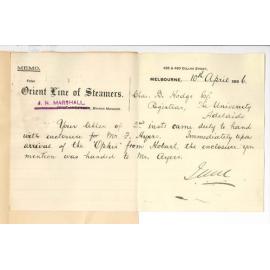 MEMO.
FROM
Orient Line of Steamers.
J. N. MARSHALL
COLLINS STREET,
MELBOURNE, 10th April 1896.
Chas. R. Hodge Esq
Registrar, The University
Adelaide
Your letter of 2nd inst: came duly to hand
with enclosure for Mr. F. Ayers. Immediately upon
arrival of the "Ophir" from Hobart, the enclosure you
mention was handed to Mr. Ayers.